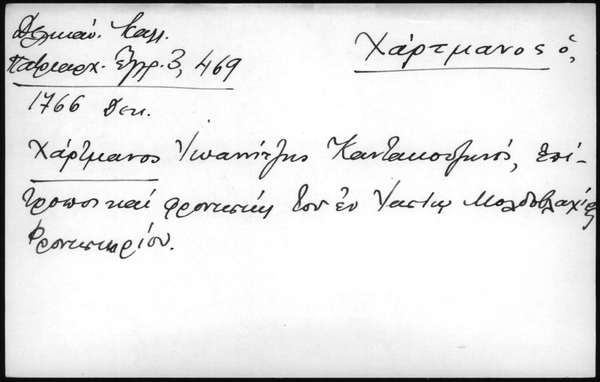 Δελικάν. Καλλ.
Πατριαρχ. Έγγρ. 3, 469
Χάρτμανος ὁ,
1766 Δεκ.
Χάρτμανος Ἰωαννίτζης Καντακουζηνός, ἐπί-
τροπος καί φροντιστής τοῦ ἐν Ἰασίῳ Μολδοβλαχίας
Φροντιστηρίου.